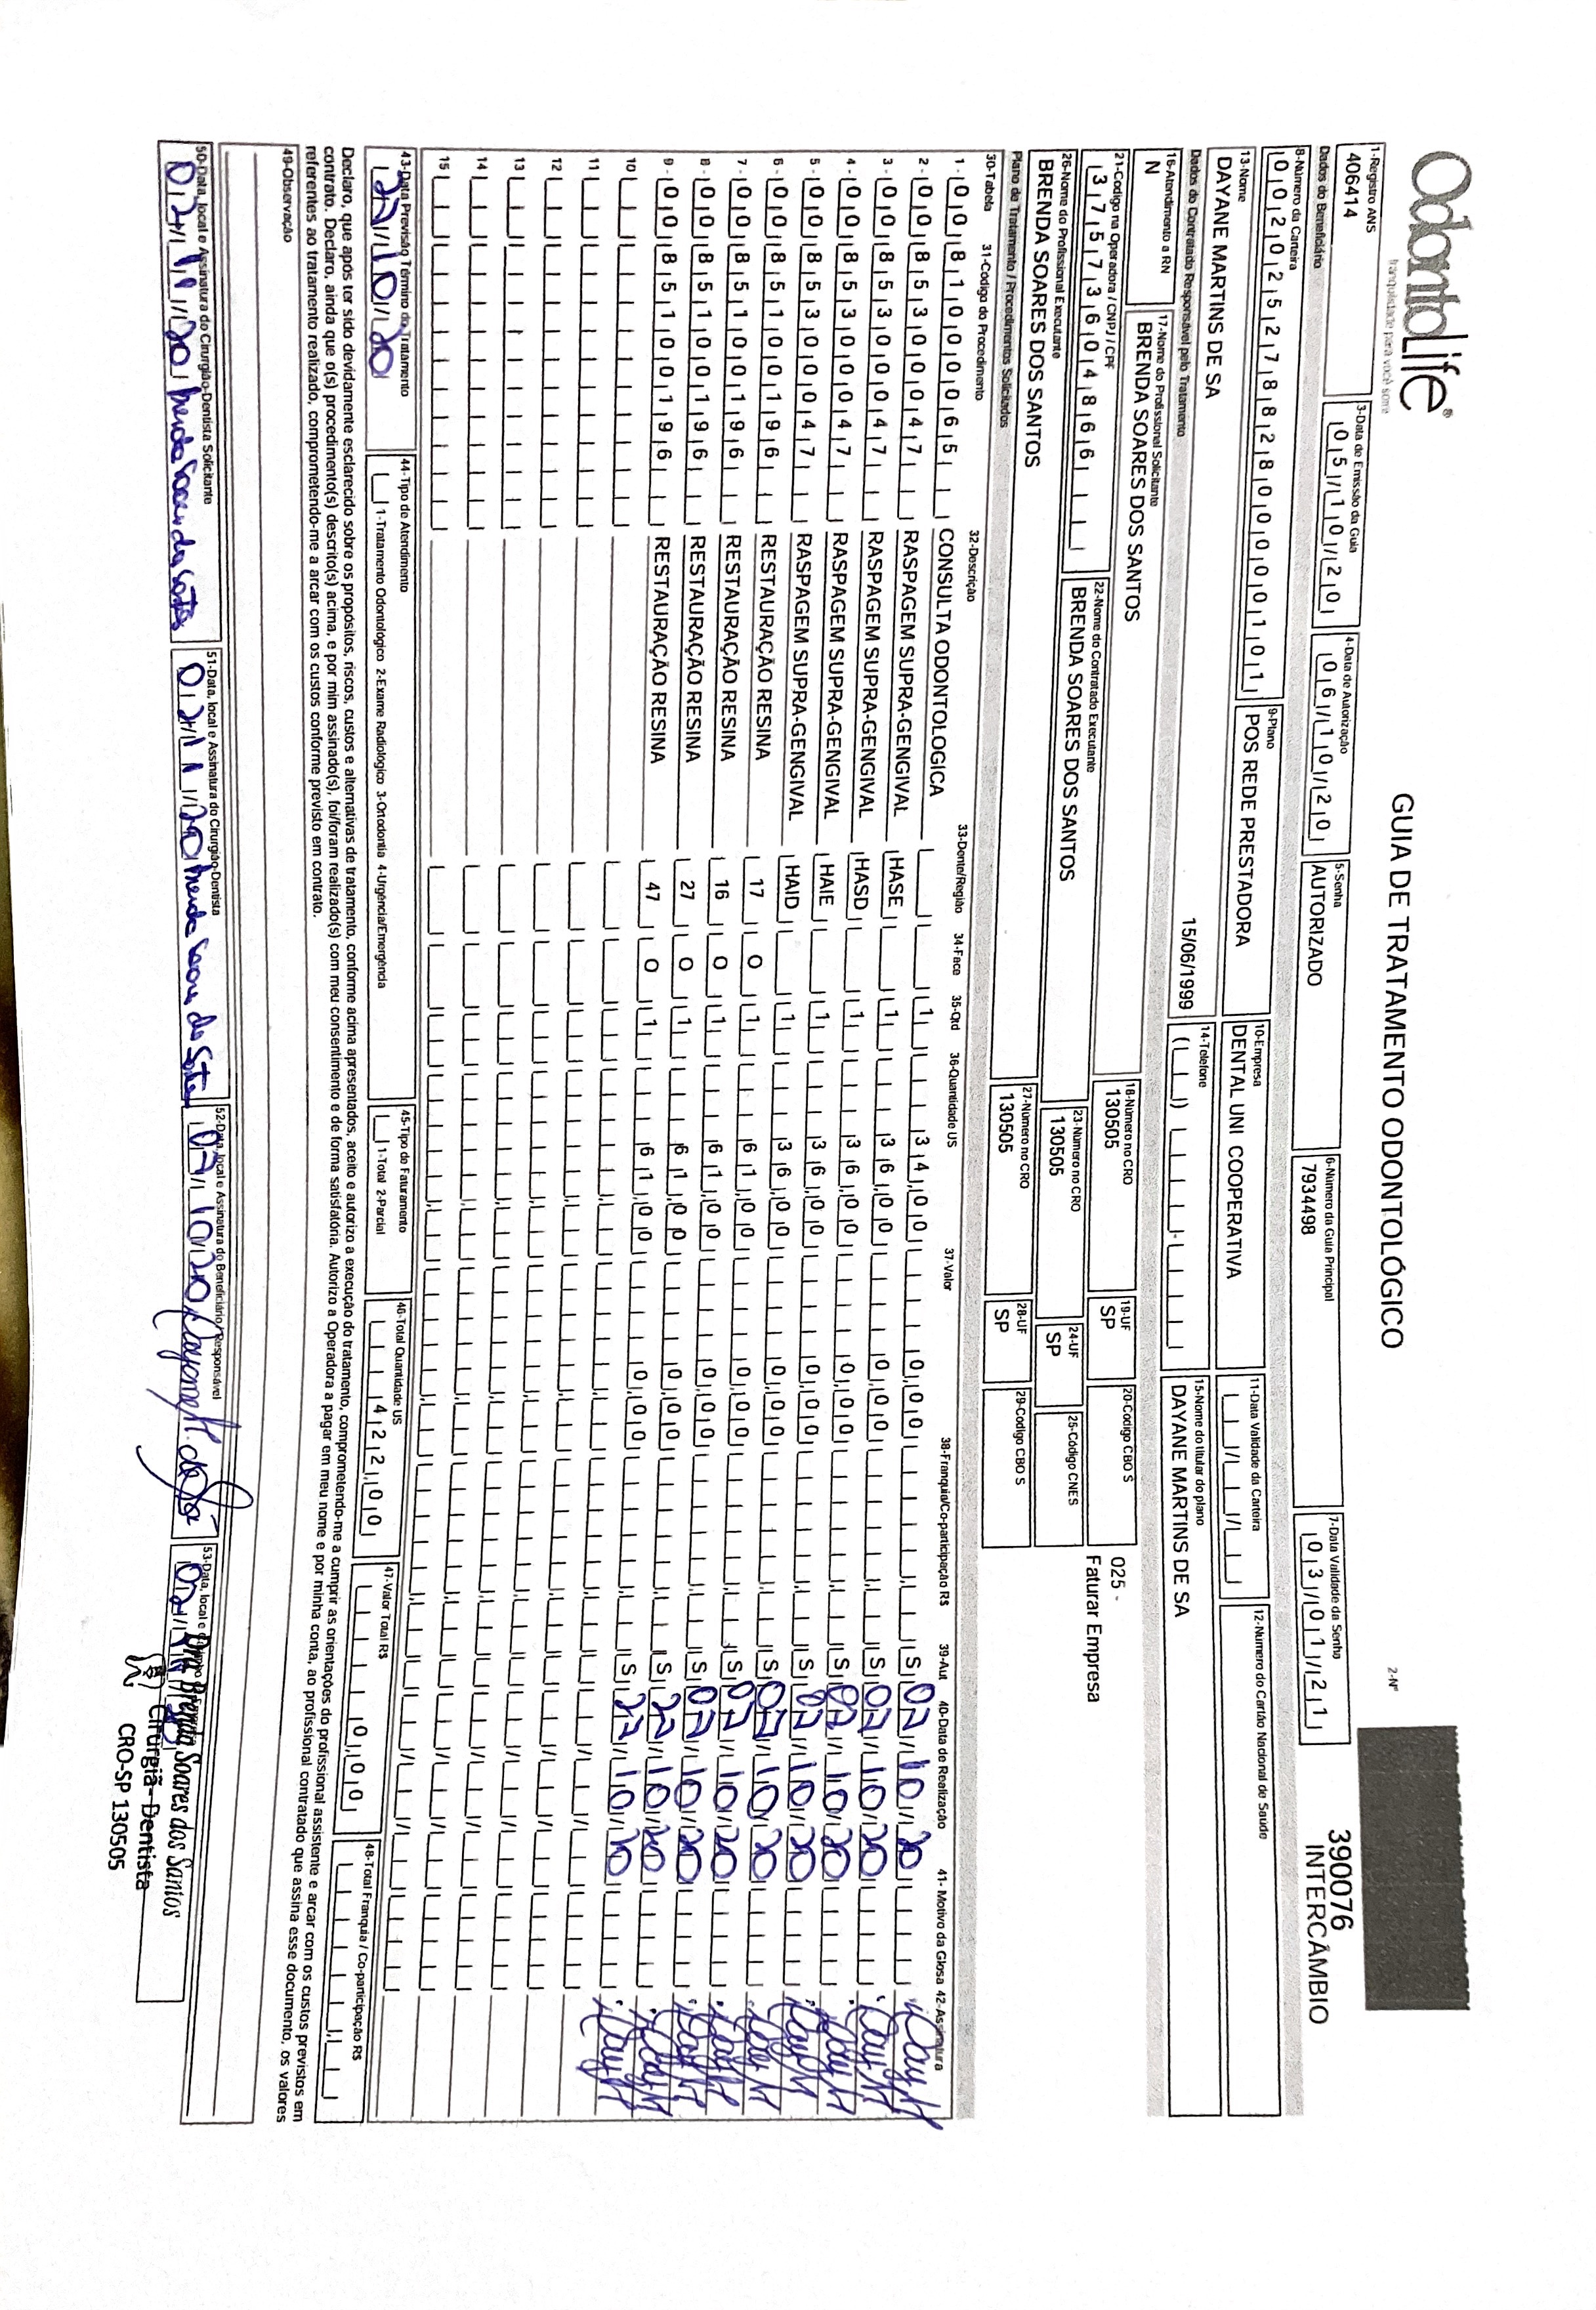 OdontoLife®
tranquilidade para você sorrir
GUIA DE TRATAMENTO ODONTOLÓGICO
2-Nº
390076
INTERCÂMBIO
1-Registro ANS
406414
3-Data de Emissão da Guia
05/10/20
4-Data de Autorização
06/10/20
5-Senha
AUTORIZADO
6-Número da Guia Principal
7934498
7-Data Validade da Senha
03/01/21
Dados do Beneficiário
8-Número da Carteira
00202527882800000101
9-Plano
POS REDE PRESTADORA
10-Empresa
DENTAL UNI COOPERATIVA
11-Data Validade da Carteira
12-Número do Cartão Nacional de Saúde
13-Nome
DAYANE MARTINS DE SA
15/06/1999
14-Telefone
15-Nome do titular do plano
DAYANE MARTINS DE SA
Dados do Contratado Responsável pelo Tratamento
16-Atendimento a RN
N
17-Nome do Profissional Solicitante
BRENDA SOARES DOS SANTOS
18-Número no CRO
130505
19-UF
SP
20-Código CBO S
025 -
Faturar Empresa
21-Código na Operadora / CNPJ / CPF
37573604866
22-Nome do Contratado Executante
BRENDA SOARES DOS SANTOS
23-Número no CRO
130505
24-UF
SP
25-Código CNES
26-Nome do Profissional Executante
BRENDA SOARES DOS SANTOS
27-Número no CRO
130505
28-UF
SP
29-Código CBO S
Plano de Tratamento / Procedimentos Solicitados
30-Tabela 31-Código do Procedimento 32-Descrição 33-Dente/Região 34-Face 35-Qtd 36-Quantidade US 37-Valor 38-Franquia/Co-participação R$ 39-Aut 40-Data de Realização 41- Motivo da Glosa 42-Assinatura
1- 00 81000065 CONSULTA ODONTOLOGICA 1 34,00 0,00 S 07/10/20
2- 00 85300047 RASPAGEM SUPRA-GENGIVAL HASE 1 36,00 0,00 S 07/10/20
3- 00 85300047 RASPAGEM SUPRA-GENGIVAL HASD 1 36,00 0,00 S 07/10/20
4- 00 85300047 RASPAGEM SUPRA-GENGIVAL HAIE 1 36,00 0,00 S 07/10/20
5- 00 85300047 RASPAGEM SUPRA-GENGIVAL HAID 1 36,00 0,00 S 07/10/20
6- 00 85100196 RESTAURAÇÃO RESINA 17 O 1 61,00 0,00 S 07/10/20
7- 00 85100196 RESTAURAÇÃO RESINA 16 O 1 61,00 0,00 S 07/10/20
8- 00 85100196 RESTAURAÇÃO RESINA 27 O 1 61,00 0,00 S 22/10/20
9- 00 85100196 RESTAURAÇÃO RESINA 47 O 1 61,00 0,00 S 22/10/20
10
11
12
13
14
15
43-Data Previsão Término do Tratamento
22/10/20
44-Tipo de Atendimento
1-Tratamento Odontológico 2-Exame Radiológico 3-Ortodontia 4-Urgência/Emergência
45-Tipo de Faturamento
1-Total 2-Parcial
46-Total Quantidade US
422,00
47-Valor Total R$
0,00
48-Total Franquia / Co-participação R$
Declaro, que após ter sido devidamente esclarecido sobre os propósitos, riscos, custos e alternativas de tratamento, conforme acima apresentados, aceito e autorizo a execução do tratamento, comprometendo-me a cumprir as orientações do profissional assistente e arcar com os custos previstos em
contrato. Declaro, ainda que o(s) procedimento(s) descrito(s) acima, e por mim assinado(s), foi/foram realizado(s) com meu consentimento e de forma satisfatória. Autorizo a Operadora a pagar em meu nome e por minha conta, ao profissional contratado que assina esse documento, os valores
referentes ao tratamento realizado, comprometendo-me a arcar com os custos conforme previsto em contrato.
49-Observação
50-Data, local e Assinatura do Cirurgião-Dentista Solicitante
Brenda Soares dos Santos
51-Data, local e Assinatura do Cirurgião-Dentista
Brenda Soares dos Santos
52-Data, local e Assinatura do Beneficiário / Responsável
07/10/20 Dayane M. de Sá
53-Data, local e
Dra Brenda Soares dos Santos
Cirurgiã-Dentista
CRO-SP 130505